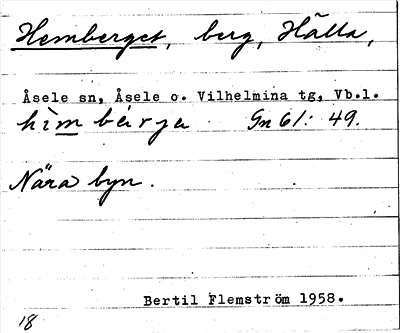 Hemberget, berg, Hälla,
Åsele sn, Åsele o. Vilhelmina tg, Vb.l.
him bärja Gn 61: 49.
Nära byn.
Bertil Flemström 1958.
18